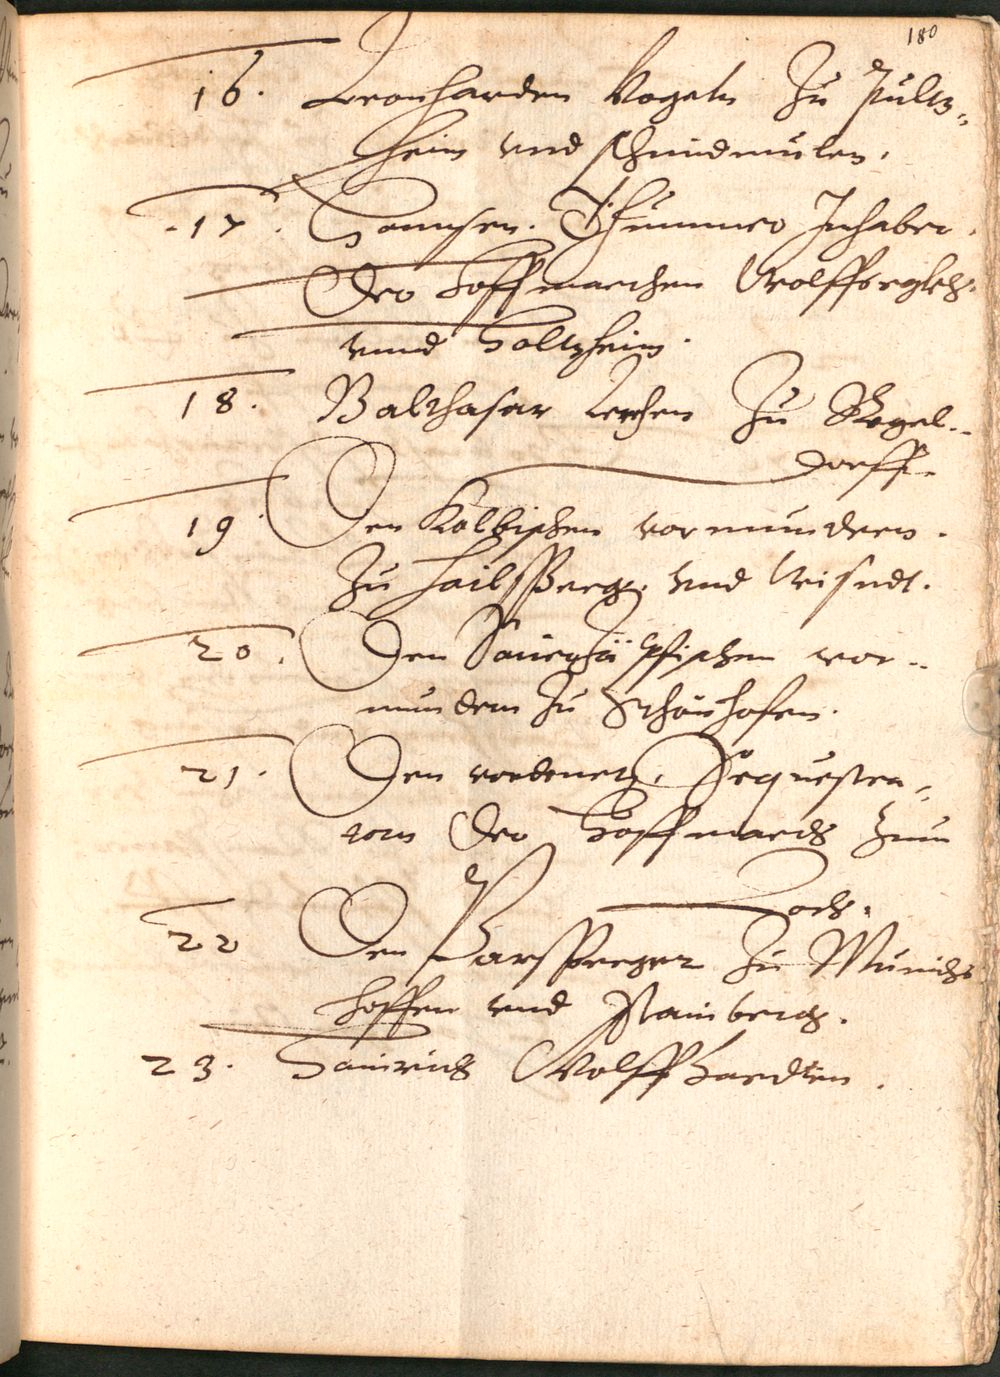 180
16. Leonharden Vogeln Zu Pultz„
heim vnd schmidmülen.
17. Hannsen. Thummer Inhaber.
der hoffmarchen Wolffsegkh.
vnnd Holtzheim.
18. Balthasar Lerchen Zu Kegel„
dorff.
19 Den Kolbischen vormundern.
Zu Hailsperg. vnd Wisendt.
20. Den Sauerzäpfischen vor„
mundern Zu Schönhofen.
21. Den verdenckh. Sequestra„
torn der hoffmarch Zum
Loch.
22 Den Parsperger Zu Münichs
hoffen vnd Stainberg.
23. Hainrich Wolff Hardten.